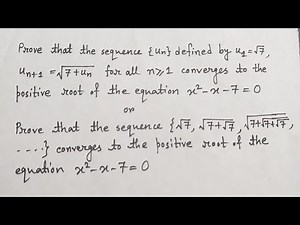 Prove that the sequence {un} defined by u₁=√7,
uₙ₊₁ = √(7+uₙ) for all n≥1 converges to the
positive root of the equation x²-x-7=0
or
Prove that the sequence {√7, √(7+√7), √(7+√(7+√7)),
.....} converges to the positive root of the
equation x²-x-7=0